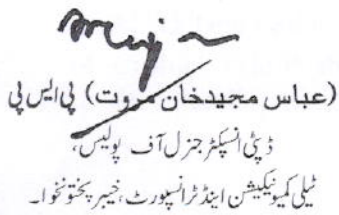 (عباس مجید خان مروت) پی ایس پی
ڈپٹی انسپکٹر جنرل آف پولیس،
ٹیلی کمیونیکیشن اینڈ ٹرانسپورٹ، خیبر پختونخوا۔